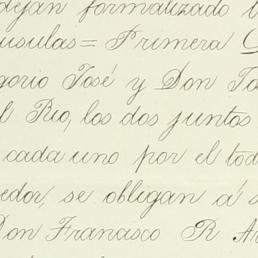 dejan formalizado
usulas = Primera
gorio José y Don
l Rio, los dos juntos
cada uno por el tod
edor, se obligan á s
Don Francisco R Ar